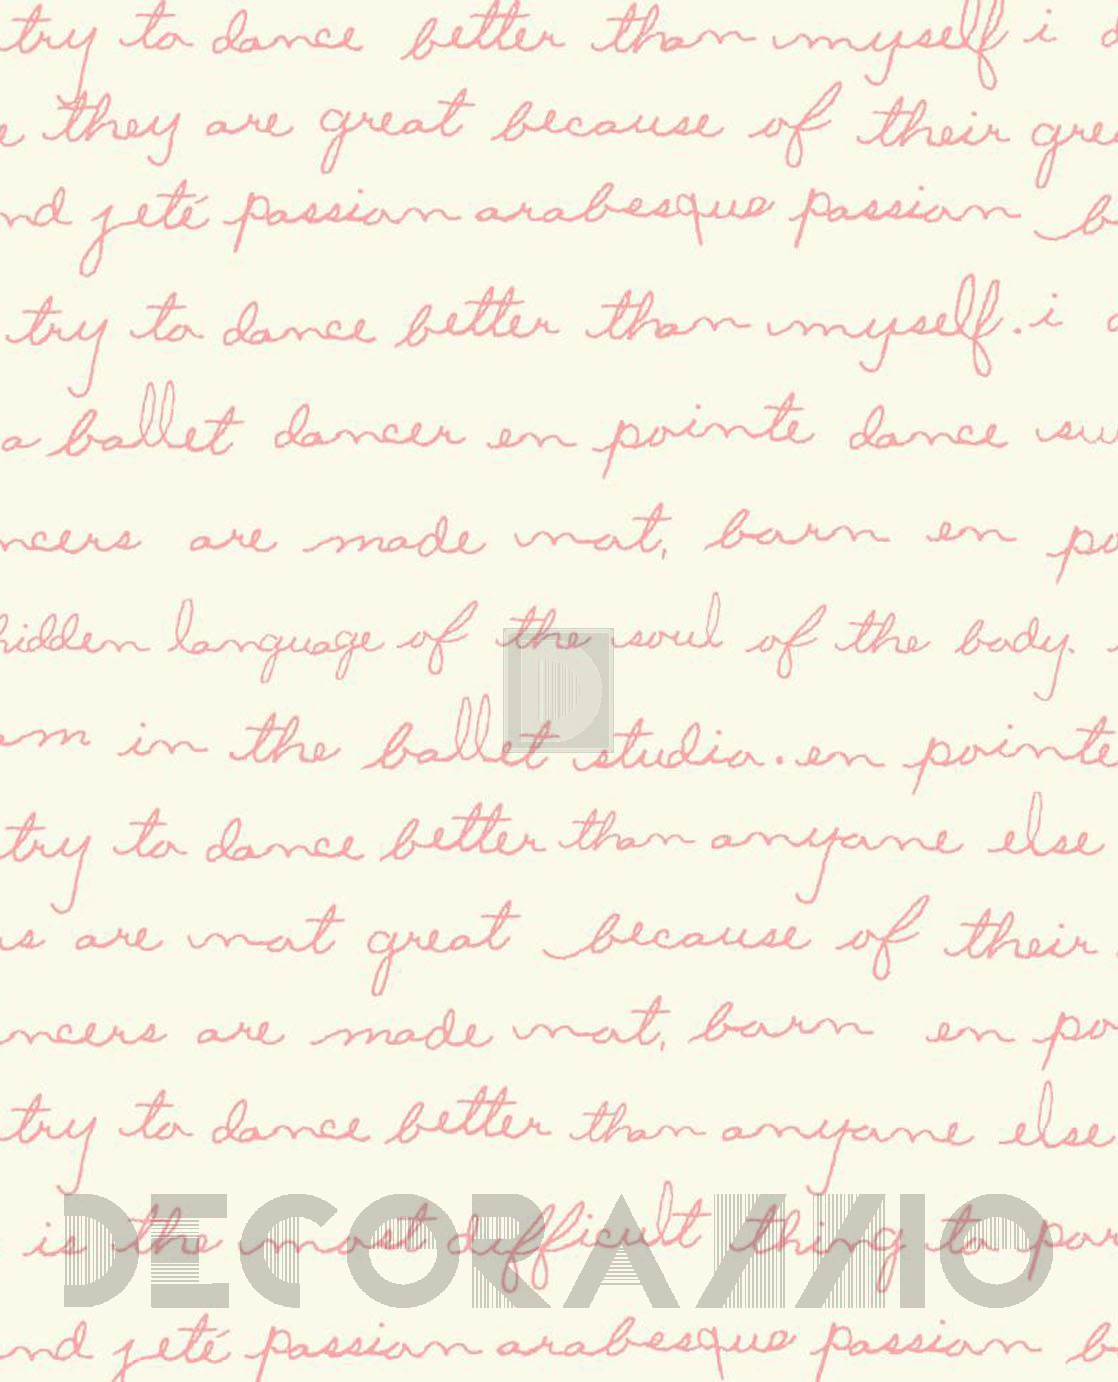 try to dance better than myself i d
e they are great because of their gre
nd jeté passion arabesque passion b
try to dance better than myself. i d
a ballet dancer en pointe dance su
ncers are made not, born en po
hidden language of the soul of the body.
om in the ballet studio. en pointe
try to dance better than anyone else
rs are not great because of their
ncers are made not, born en po
try to dance better than anyone else
is the most difficult thing to por
DECORAMMO
nd jeté passion arabesque passion b